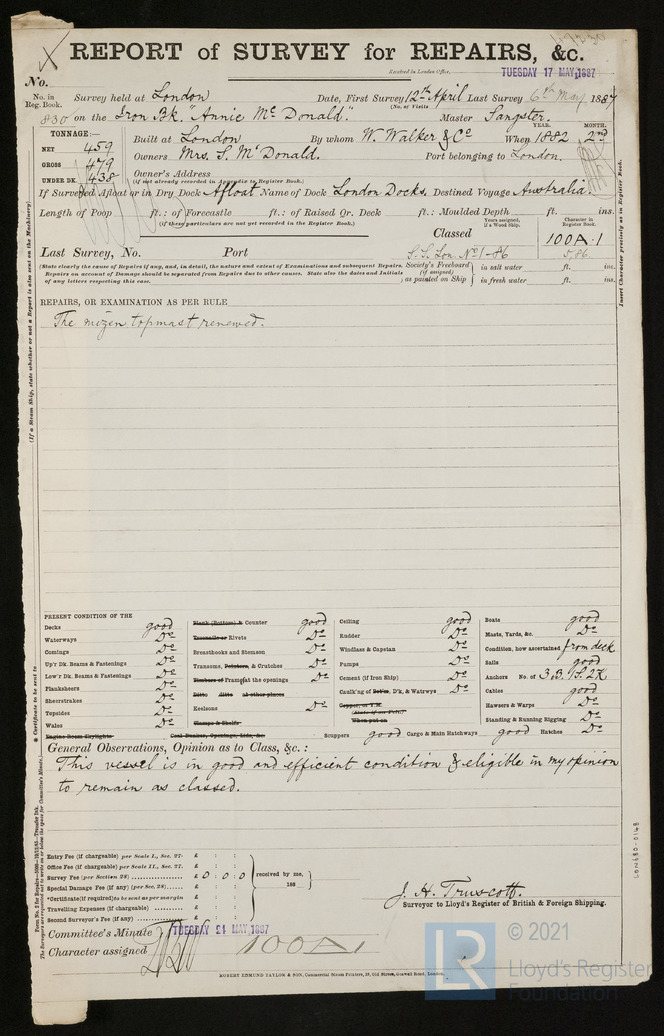 REPORT of SURVEY for REPAIRS, &c.
Received in London Office, TUESDAY 17 MAY 1887
No.
No. in Reg. Book. Survey held at London Date, First Survey 12th April Last Survey 6th May 1887
(No. of Visits
830 on the Iron Bk. "Annie McDonald." Master Sangster.
TONNAGE:— YEAR. MONTH.
NET 459 Built at London By whom W. Walker & Co When 1882 2nd
GROSS 479 Owners Mrs. S. McDonald. Port belonging to London.
UNDER DK. 438 Owner's Address
(if not already recorded in Appendix to Register Book.)
If Surveyed Afloat or in Dry Dock Afloat Name of Dock London Docks. Destined Voyage Australia.
Length of Poop ft.: of Forecastle ft.: of Raised Qr. Deck ft.: Moulded Depth ft. ins.
(if these particulars are not yet recorded in the Register Book.)
Years assigned, if a Wood Ship. Character in Register Book.
Classed 100A.1
Last Survey, No. Port S.S. Lon No 1-86 5,86
(State clearly the cause of Repairs if any, and, in detail, the nature and extent of Examinations and subsequent Repairs. Society's Freeboard (if assigned) in salt water ft. ins.
Repairs on account of Damage should be separated from Repairs due to other causes. State also the dates and Initials
of any letters respecting this case. as painted on Ship in fresh water ft. ins.
REPAIRS, OR EXAMINATION AS PER RULE
The mizen topmast renewed.
PRESENT CONDITION OF THE
Decks good
Waterways Do
Comings Do
Up'r Dk. Beams & Fastenings Do
Low'r Dk. Beams & Fastenings Do
Planksheers Do
Sheerstrakes Do
Topsides Do
Wales Do
Engine Room Skylights
Plank (Bottom) & Counter good
Treenails or Rivets Do
Breasthooks and Stemson Do
Transoms, Pointers, & Crutches Do
Timbers of Frame at the openings Do
Ditto ditto at other places
Keelsons Do
Clamps & Shelfs
Coal Bunker, Openings, Lids, &c.
Ceiling good
Rudder Do
Windlass & Capstan Do
Pumps Do
Cement (if Iron Ship) Do
Caulk'ng of Bot'm, D'k, & Watrwys Do
Copper, or Y.M.
(State if on Felt)
When put on
Scuppers good Cargo & Main Hatchways good Hatches Do
Boats good
Masts, Yards, &c. Do
Condition, how ascertained from deck
Sails good
Anchors No. of 3.B. 1S. 2K
Cables good
Hawsers & Warps Do
Standing & Running Rigging Do
General Observations, Opinion as to Class, &c. :
This vessel is in good and efficient condition & eligible in my opinion
to remain as classed.
Entry Fee (if chargeable) per Scale I., Sec. 27. £ : :
Office Fee (if chargeable) per Scale II., Sec. 27. £ : :
Survey Fee (per Section 28) £ 0 : 0 : 0
Special Damage Fee (if any) (per Sec. 28) £ : :
*Certificate (if required) to be sent as per margin £ : :
Travelling Expenses (if chargeable) £ : :
Second Surveyor's Fee (if any) £ : :
received by me,
188
J. H. Truscott.
Surveyor to Lloyd's Register of British & Foreign Shipping.
Committee's Minute TUESDAY 24 MAY 1887
Character assigned 100A1
ROBERT EDMUND TAYLOR & SON, Commercial Steam Printers, 19, Old Street, Goswell Road, London.
(If a Steam Ship, state whether or not a Report is also sent on the Machinery.)
* Certificate to be sent to
Insert Character precisely as in Register Book.
LON680-0148
LR
© 2021
Lloyd's Register
Foundation